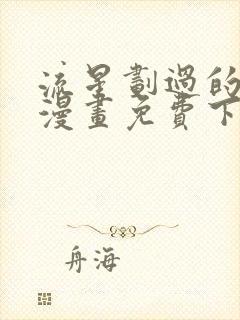 流星劃過的
漫畫免費下
舟海